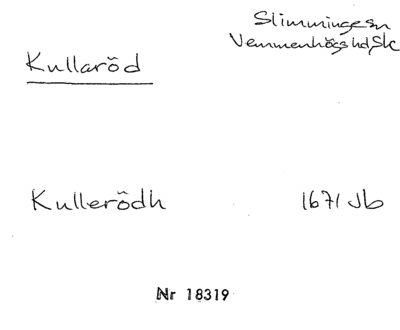 Slimminge sn
Vemmenhögs hd, Sk
Kullaröd
Kullerödh 1671 Jb
Nr 18319